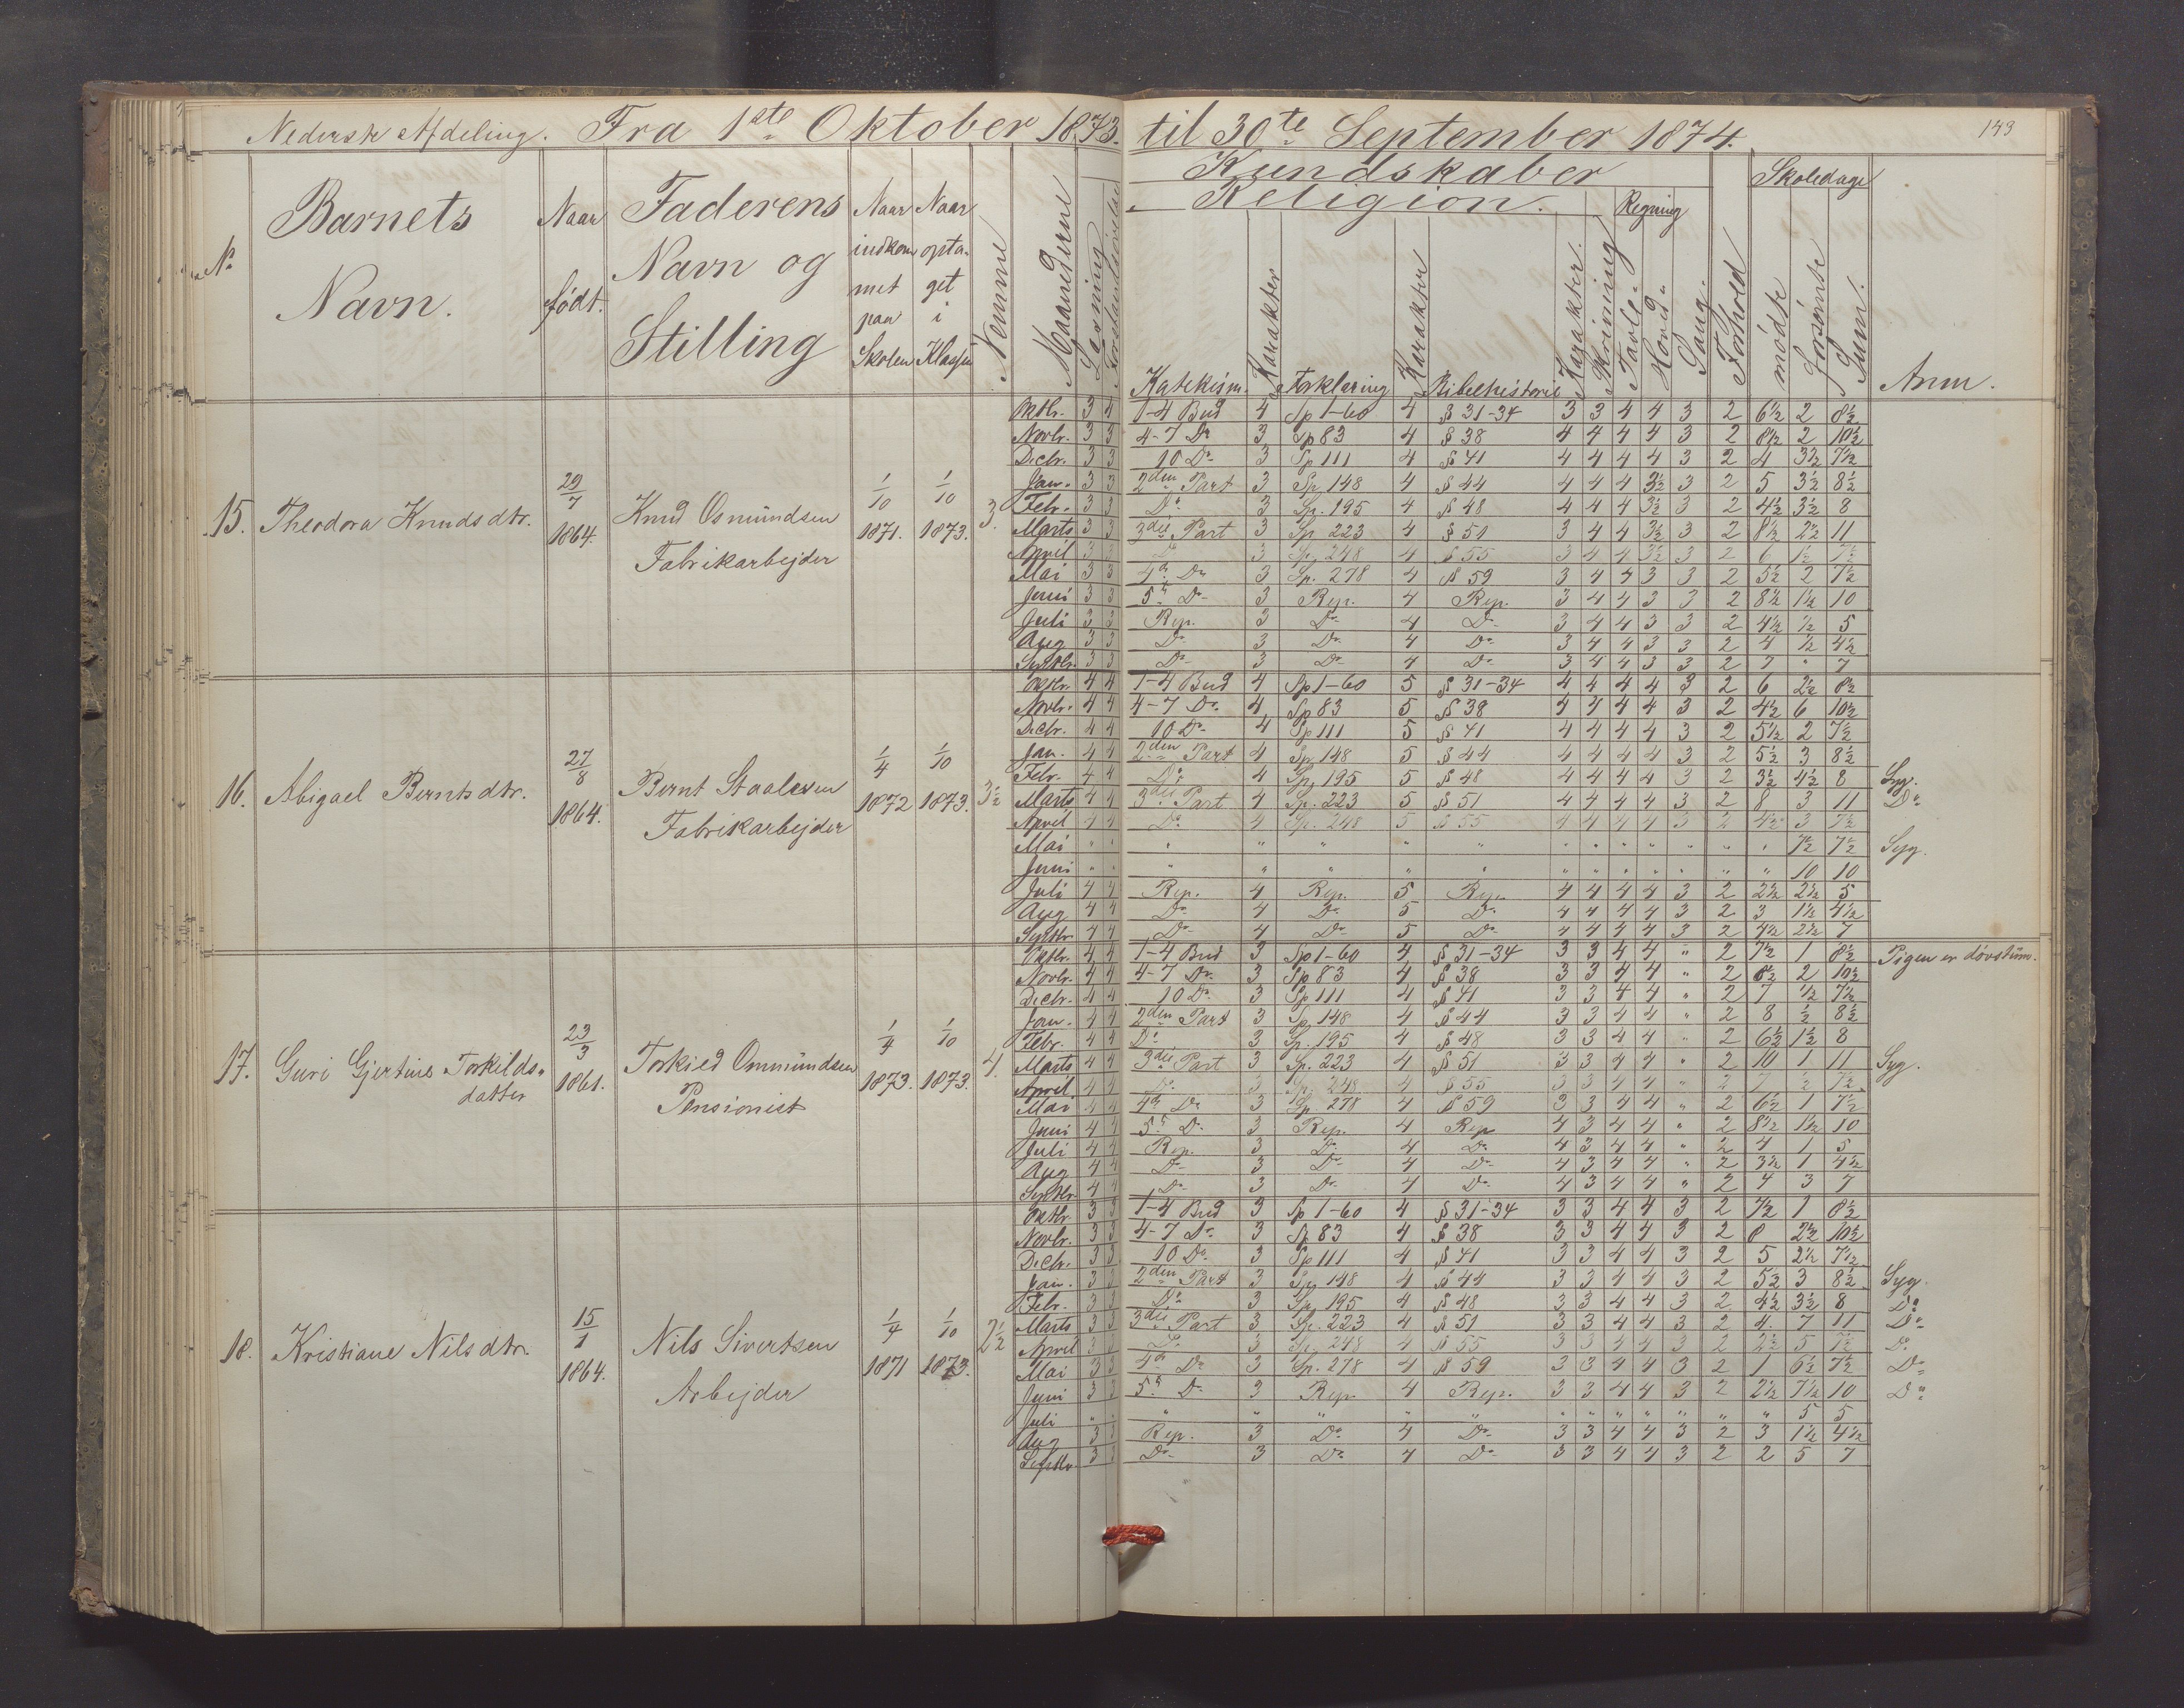 Nederste Afdeling. Fra 1ste Oktober 1873. til 30te September 1874. 143
No Barnets Navn. Naar født. Faderens Navn og Stilling Naar indkommet paa Skolen Naar optaget i Klassen Nemme Maanederne Læsning
Kundskaber Skoledage
Religion. Regning
Katekism. Karakter Forklaring Karakter Bibelhistorie Karakter. Skrivning Tavle- Hoved- Sang. Forhold mødte forsømte Sum. Anm.
15. Theodora Knudsdtr. 29/7 1864. Knud Osmundsen Fabrikarbejder 1/10 1871. 1/10 1873. 3.
Oktbr. 3 4 1-4 Bud 4 Sp 1-60 4 § 31-34 3 3 4 4 3 2 6½ 2 8½
Novbr. 3 3 4-7 Do 3 Sp 83 4 § 38 4 4 4 4 3 2 8½ 2 10½
Decbr. 3 3 10 Do 3 Sp 111 4 § 41 4 4 4 4 3 2 4 3½ 7½
Jan. 3 3 2den Part 3 Sp 148 4 § 44 4 4 4 3½ 3 2 5 3½ 8½
Febr. 3 3 Do 3 Sp. 195 4 § 48 4 4 4 3½ 3 2 4½ 3½ 8
Marts 3 3 3die Part 3 Sp 223 4 § 51 3 4 4 3½ 3 2 8½ 2½ 11
April 3 3 Do 3 Sp. 248 4 § 55 3 4 4 3½ 3 2 6 1½ 7½
Mai 3 3 4de Do 3 Sp. 278 4 § 59 3 4 4 3 3 2 5½ 2 7½
Juni 3 3 5te Do 3 Rep. 4 Rep. 3 4 4 3 3 2 8½ 1½ 10
Juli 3 3 Rep. 3 Do 4 Do 3 4 4 3 3 2 4½ ½ 5
Aug 3 3 Do 3 Do 4 Do 3 4 4 3 3 2 4 ½ 4½
Septbr. 3 3 Do 3 Do 4 Do 3 4 4 3 3 2 7 " 7
16. Abigael Berntsdtr. 27/8 1864. Bernt Staalesen Fabrikarbejder 1/4 1872 1/10 1873. 3½
Oktbr. 4 4 1-4 Bud 4 Sp 1-60 5 § 31-34 4 4 4 4 3 2 6 2½ 8½
Novbr. 4 4 4-7 Do 4 Sp 83 5 § 38 4 4 4 4 3 2 4½ 6 10½
Decbr. 4 4 10 Do 4 Sp 111 5 § 41 4 4 4 4 3 2 5½ 2 7½
Jan. 4 4 2den Part 4 Sp. 148 5 § 44 4 4 4 4 3 2 5½ 3 8½
Febr. 4 4 Do 4 Sp. 195 5 § 48 4 4 4 4 3 2 3½ 4½ 8 Syg.
Marts 4 4 3die Part 4 Sp. 223 5 § 51 4 4 4 4 3 2 8 3 11 Do
April 4 4 Do 4 Sp. 248 5 § 55 4 4 4 4 3 2 4½ 3 7½
Mai " " " " " " " " " " " " " " 7½ 7½ Syg.
Juni " " " " " " " " " " " " " " 10 10
Juli 4 4 Rep. 4 Rep. 5 Rep. 4 4 4 4 3 2 2½ 2½ 5
Aug 4 4 Do 4 Do 5 Do 4 4 4 4 3 2 3 1½ 4½
Septbr. 4 4 Do 4 Do 5 Do 4 4 4 4 3 2 4½ 2½ 7
17. Guri Gjertine Torkildsdatter 23/3 1861. Torkied Ommundsen Pensionist 1/4 1873. 1/10 1873. 4.
Oktbr. 4 4 1-4 Bud 3 Sp 1-60 4 § 31-34 3 3 4 4 " 2 7½ 1 8½ Pigen er døvstum.
Novbr. 4 4 4-7 Do 3 Sp 83 4 § 38 3 3 4 4 " 2 8½ 2 10½
Decbr. 4 4 10 Do 3 Sp 111 4 § 41 3 3 4 4 " 2 7 ½ 7½
Jan. 4 4 2den Part 3 Sp 148 4 § 44 3 3 4 4 " 2 8 ½ 8½
Febr. 4 4 Do 3 Sp. 195 4 § 48 3 3 4 4 " 2 6½ 1½ 8
Marts 4 4 3die Part 3 Sp. 223 4 § 51 3 3 4 4 " 2 10 1 11 Syg.
April 4 4 Do 3 Sp. 248 4 § 55 3 3 4 4 " 2 7 ½ 7½
Mai 4 4 4de Do 3 Sp. 278 4 § 59 3 3 4 4 " 2 6½ 1 7½
Juni 4 4 5te Do 3 Rep. 4 Rep 4 3 4 4 " 2 8½ 1½ 10
Juli 4 4 Rep. 3 Do 4 Do 4 3 4 4 " 2 4 1 5
Aug 4 4 Do 3 Do 4 Do 4 3 4 4 " 2 3½ 1 4½
Septbr. 4 4 Do 3 Do 4 Do 4 3 4 4 " 2 4 3 7
18. Kristiane Nilsdtr. 15/1 1864. Nils Sivertsen Arbejder 1/4 1871 1/10 1873. 2½
Oktbr. 3 3 1-4 Bud 3 Sp 1-60 4 § 31-34 3 3 4 4 3 2 7½ 1 8½
Novbr. 3 3 4-7 Do 3 Sp 83 4 § 38 3 3 4 4 3 2 8 2½ 10½
Decbr. 3 3 10 Do 3 Sp 111 4 § 41 3 3 4 4 3 2 5 2½ 7½
Jan. 3 3 2den Part 3 Sp. 148 4 § 44 3 3 4 4 3 2 5½ 3 8½ Syg.
Febr. 3 3 Do 3 Sp. 195 4 § 48 3 3 4 4 3 2 4½ 3½ 8 Do
Marts 3 3 3die Part 3 Sp. 223 4 § 51 3 3 4 4 3 2 4 7 11 Do
April 3 3 Do 3 Sp. 248 4 § 55 3 3 4 4 3 2 2½ 5 7½ Do
Mai 3 3 4de Do 3 Sp. 278 4 § 59 3 3 4 4 3 2 1 6½ 7½ Do
Juni 3 3 5te Do 3 Rep. 4 Rep. 3 3 4 4 3 2 2½ 7½ 10 Do
Juli " " " " " " " " " " " " " " 5 5
Aug 3 3 Rep. 3 Do 4 Do 3 3 4 4 3 2 3 1½ 4½
Septbr 3 3 Do 3 Do 4 Do 3 3 4 4 3 2 2 5 7